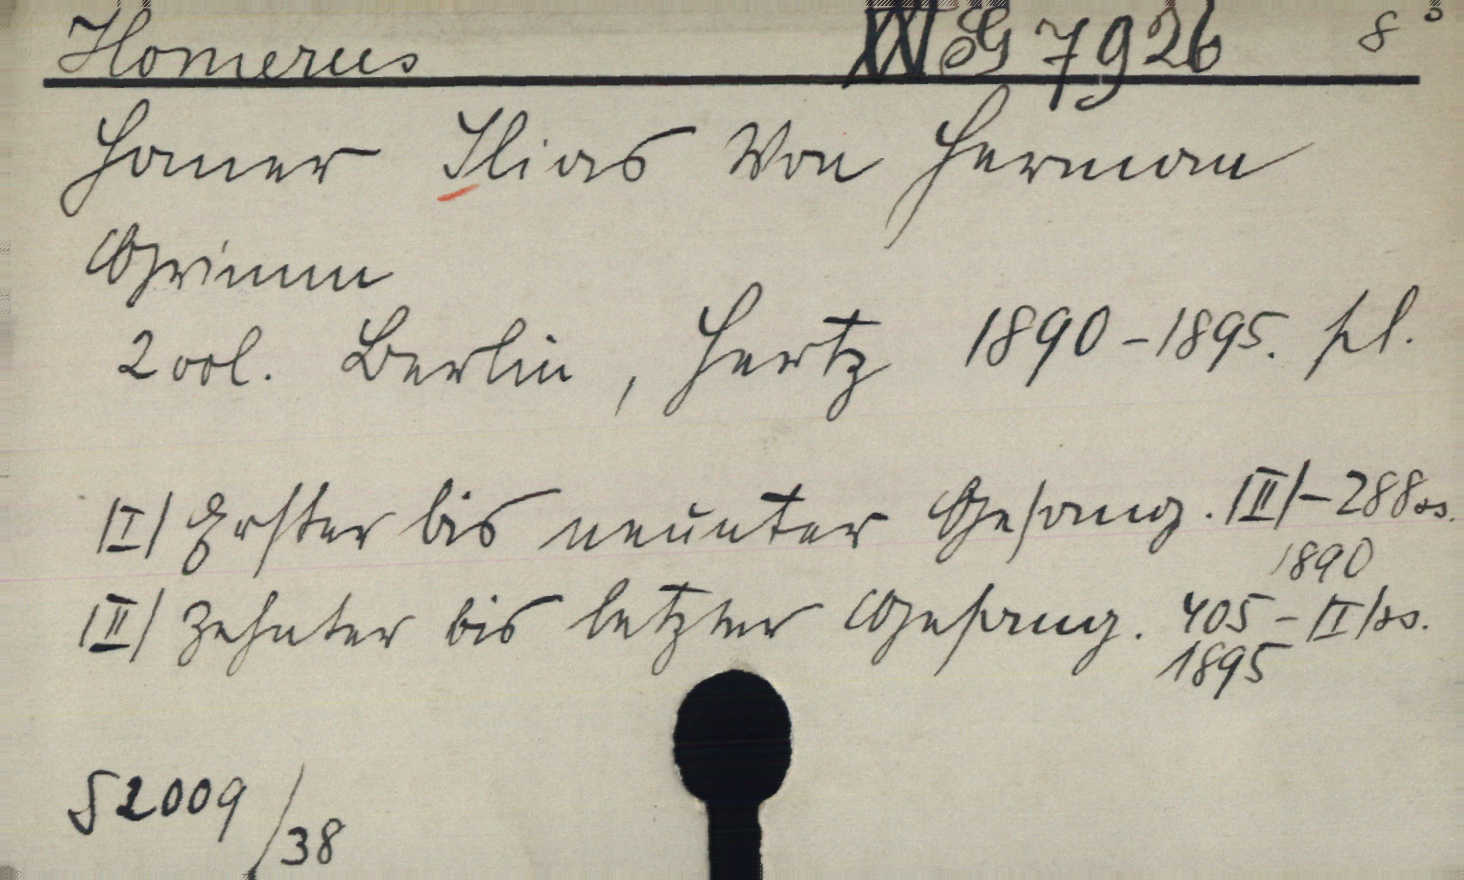 Homerus XXI G 7926 8°
Homer Ilias Von Herman
Grimm
2 vol. Berlin, Hertz 1890-1895. pl.
|I| Erster bis neunter Gesang. |II|-288 ss.
1890
|II| Zehnter bis letzter Gesang. 405-II|ss.
1895
S 2009/38